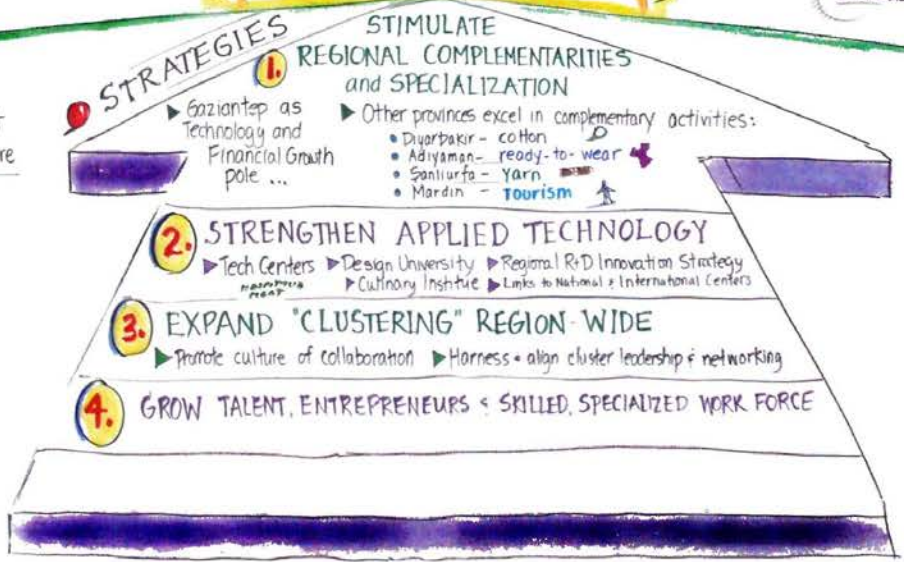 STRATEGIES
1. STIMULATE
REGIONAL COMPLEMENTARITIES
and SPECIALIZATION
▶ Gaziantep as
Technology and
Financial Growth
pole ...
▶ Other provinces excel in complementary activities:
• Diyarbakir - cotton
• Adiyaman - ready-to-wear
• Sanliurfa - yarn
• Mardin - Tourism
2. STRENGTHEN APPLIED TECHNOLOGY
▶ Tech Centers ▶ Design University ▶ Regional R+D Innovation Strategy
▶ Culinary Institue ▶ Links to National & International Centers
3. EXPAND "CLUSTERING" REGION-WIDE
▶ Promote culture of collaboration ▶ Harness + align cluster leadership & networking
4. GROW TALENT, ENTREPRENEURS & SKILLED, SPECIALIZED WORK FORCE